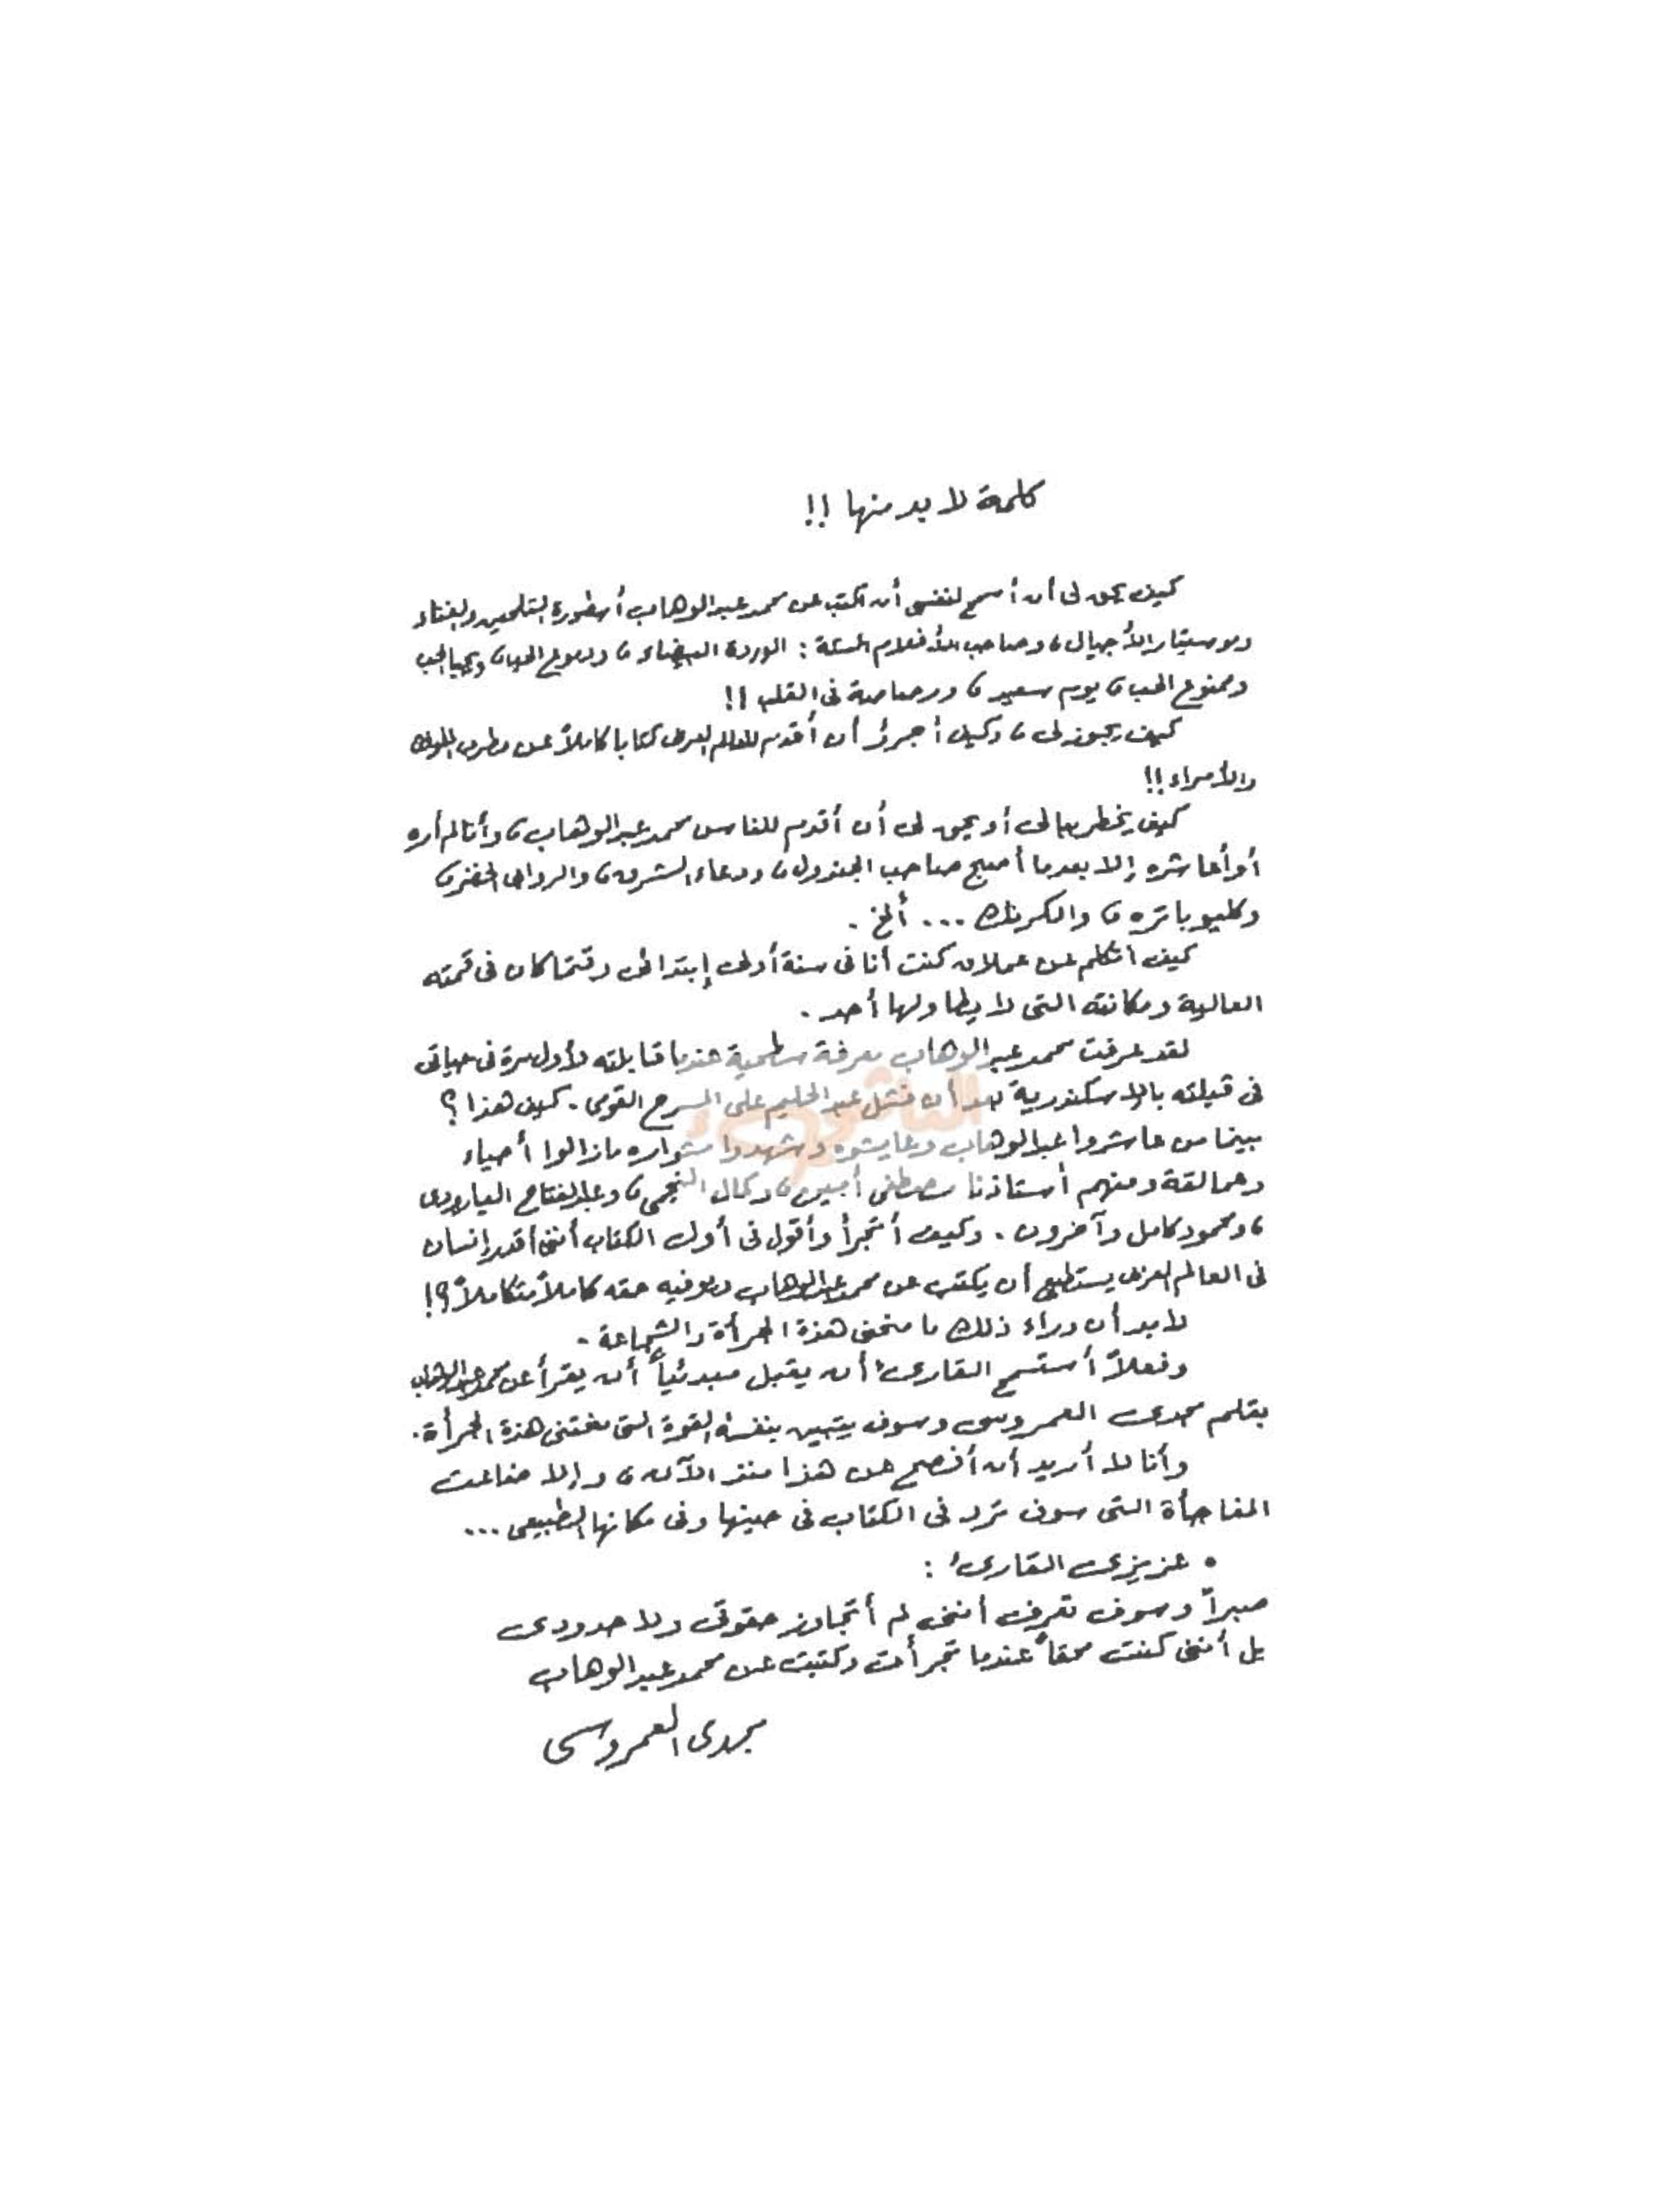 كلمة لابد منها !!
كيف يحق لى أن أسمح لنفسى أن أكتب عن محمد عبدالوهاب أسطورة التلحين والغناء
وموسيقار الأجيال، وصاحب الأفلام الستة : الوردة البيضاء، ودموع الحب، ويحيا الحب
وممنوع الحب، يوم سعيد، ورصاصة فى القلب !!
كيف يجوز لى، وكيف أجرؤ أن أقدم للعالم العربى كتابا كاملاً عن مطرب الملوك
والأمراء !!
كيف يخطر ببالى أو يحق لى أن أقدم للناس محمد عبدالوهاب، وأنا لم أره
أو أعاشره إلا بعدما أصبح صاحب الجندول، ودعاء الشرق، والروابى الخضر،
وكليوباتره، والكرنك ... ألخ .
كيف أتكلم عن عملاق كنت أنا فى سنة أولى إبتدائى وقتما كان فى قمته
العالية ومكانته التى لا يطاولها أحد .
لقد عرفت محمد عبدالوهاب معرفة سطحية عندما قابلته لأول مرة فى حياتى
فى ڤيلته بالإسكندرية بعد أن فشل عبدالحليم على المسرح القومى . كيف هذا ؟
بينما من عاشروا عبدالوهاب وعايشوه وشهدوا مشواره مازالوا أحياء
وعمالقة ومنهم أستاذنا مصطفى أمين، وكمال النجمى، وعبدالفتاح البارودى
، ومحمود كامل وآخرون . وكيف أتجرأ وأقول فى أول الكتاب أننى أقدر إنسان
فى العالم العربى يستطيع أن يكتب عن محمد عبدالوهاب ويوفيه حقه كاملاً متكاملاً ؟!
لابد أن وراء ذلك ما منحنى هذة الجرأة والشجاعة .
وفعلاً أستسمح القارئ أن يقبل مبدئياً أن يقرأ عن محمد عبدالوهاب
بقلم مجدى العمروسى وسوف يتبين بنفسه القوة التى منحتنى هذة الجرأة .
وأنا لا أريد أن أفصح عن هذا منذ الآن، وإلا ضاعت
المفاجأة التى سوف ترد فى الكتاب فى حينها وفى مكانها الطبيعى ...
• عزيزى القارئ :
صبراً وسوف تعرف أننى لم أتجاوز حقوقى ولا حدودى
بل أننى كنت محقاً عندما تجرأت وكتبت عن محمد عبدالوهاب
مجدى العمروسى